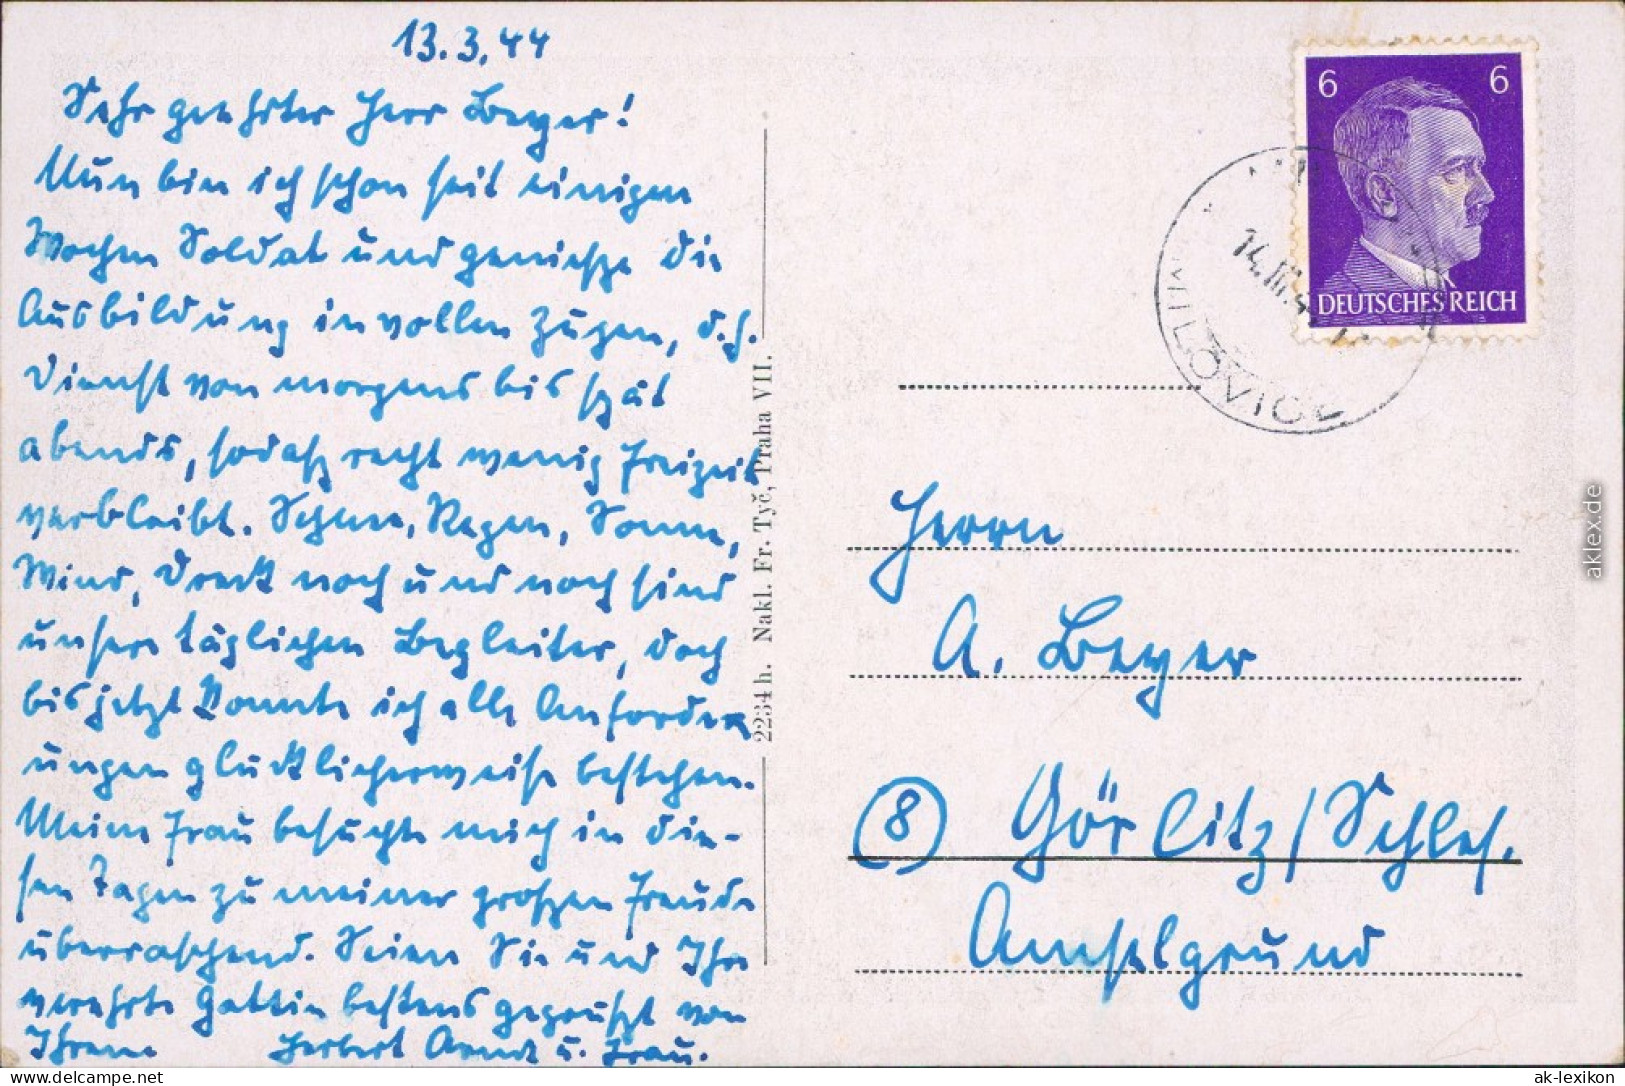 13.3.44
Sehr geehrter Herr Beyer!
Nun bin ich schon seit einigen
Wochen Soldat und genieße die
Ausbildung in vollen Zügen, d.h.
Dienst von morgens bis spät
abends, sodaß recht wenig Freizeit
verbleibt. Schnee, Regen, Sonne,
Wind, Dreck noch und noch sind
unsere täglichen Begleiter, doch
bis jetzt konnte ich alle Anforder
ungen glücklicherweise bestehen.
Meine Frau besuchte mich in die-
sen Tagen zu meiner großen Freude
überraschend. Seien Sie und Ihre
verehrte Gattin bestens gegrüßt von
Ihrem Herbert Arndt u. Frau.
2234 h. Nakl. Fr. Tyč, Praha VII.
6 6
DEUTSCHES REICH
14.III.4
MILOVICE
Herrn
A. Beyer
8 Görlitz/Schles.
Amselgrund
aklex.de
delcampe.net
ak-lexikon